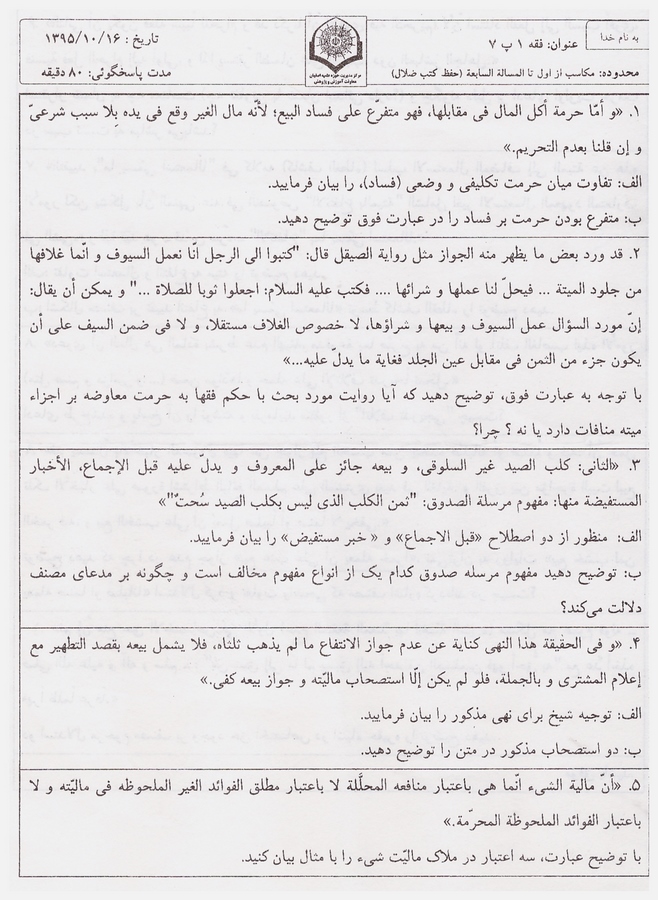 به نام خدا
عنوان: فقه ۱ پ ۷
مرکز مدیریت حوزه علمیه اصفهان
معاونت آموزش و پژوهش
تاریخ : ۱۳۹۵/۱۰/۱۶
محدوده: مکاسب از اول تا المسالة السابعة (حفظ کتب ضلال)
مدت پاسخگوئی: ۸۰ دقیقه
۱. «و أمّا حرمة أکل المال فی مقابلها، فهو متفرّع علی فساد البیع؛ لأنّه مال الغیر وقع فی یده بلا سبب شرعیّ
و إن قلنا بعدم التحریم.»
الف: تفاوت میان حرمت تکلیفی و وضعی (فساد)، را بیان فرمایید.
ب: متفرع بودن حرمت بر فساد را در عبارت فوق توضیح دهید.
۲. قد ورد بعض ما یظهر منه الجواز مثل روایة الصیقل قال: "کتبوا الی الرجل أنّا نعمل السیوف و انّما غلافها
من جلود المیتة ... فیحلّ لنا عملها و شرائها .... فکتب علیه السلام: اجعلوا ثوبا للصلاة ..." و یمکن أن یقال:
إنّ مورد السؤال عمل السیوف و بیعها و شراؤها، لا خصوص الغلاف مستقلا، و لا فی ضمن السیف علی أن
یکون جزء من الثمن فی مقابل عین الجلد فغایة ما یدلّ علیه...»
با توجه به عبارت فوق، توضیح دهید که آیا روایت مورد بحث با حکم فقها به حرمت معاوضه بر اجزاء
میته منافات دارد یا نه ؟ چرا؟
۳. «الثانی: کلب الصید غیر السلوقی، و بیعه جائز علی المعروف و یدلّ علیه قبل الإجماع، الأخبار
المستفیضة منها: مفهوم مرسلة الصدوق: "ثمن الکلب الذی لیس بکلب الصید سُحتٌ"»
الف: منظور از دو اصطلاح «قبل الاجماع» و « خبر مستفیض» را بیان فرمایید.
ب: توضیح دهید مفهوم مرسله صدوق کدام یک از انواع مفهوم مخالف است و چگونه بر مدعای مصنف
دلالت می‌کند؟
۴. «و فی الحقیقة هذا النهی کنایة عن عدم جواز الانتفاع ما لم یذهب ثلثاه، فلا یشمل بیعه بقصد التطهیر مع
إعلام المشتری و بالجملة، فلو لم یکن إلّا استصحاب مالیّته و جواز بیعه کفی.»
الف: توجیه شیخ برای نهی مذکور را بیان فرمایید.
ب: دو استصحاب مذکور در متن را توضیح دهید.
۵. «أنّ مالیة الشیء انّما هی باعتبار منافعه المحلَّلة لا باعتبار مطلق الفوائد الغیر الملحوظه فی مالیّته و لا
باعتبار الفوائد الملحوظة المحرّمة.»
با توضیح عبارت، سه اعتبار در ملاک مالیّت شیء را با مثال بیان کنید.